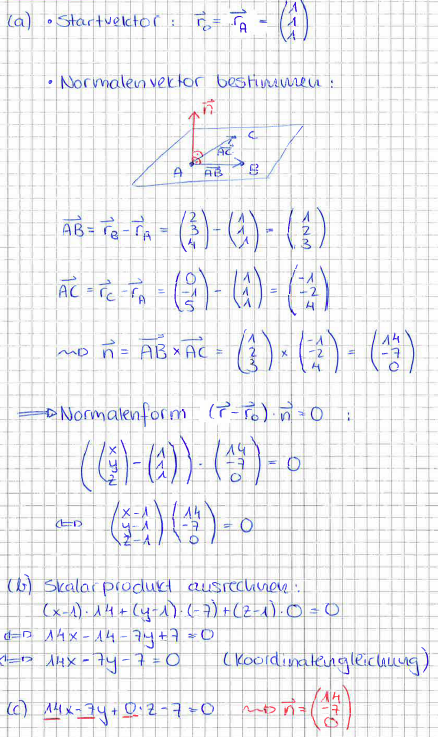 (a) • Startvektor : r⃗₀ = r⃗_A = (1 1 1)
• Normalenvektor bestimmen :
n⃗
C
AC⃗
A AB⃗ B
AB⃗ = r⃗_B - r⃗_A = (2 3 4) - (1 1 1) = (1 2 3)
AC⃗ = r⃗_C - r⃗_A = (0 -1 5) - (1 1 1) = (-1 -2 4)
⇝ n⃗ = AB⃗ × AC⃗ = (1 2 3) × (-1 -2 4) = (14 -7 0)
⟹ Normalenform (r⃗ - r⃗₀) · n⃗ = 0 :
((x y z) - (1 1 1)) · (14 -7 0) = 0
⇔ (x-1 y-1 z-1) (14 -7 0) = 0
(b) Skalarprodukt ausrechnen :
(x-1) · 14 + (y-1) · (-7) + (z-1) · 0 = 0
⇔ 14x - 14 - 7y + 7 = 0
⇔ 14x - 7y - 7 = 0 (Koordinatengleichung)
(c) 14x - 7y + 0 · z - 7 = 0 ⇝ n⃗ = (14 -7 0)